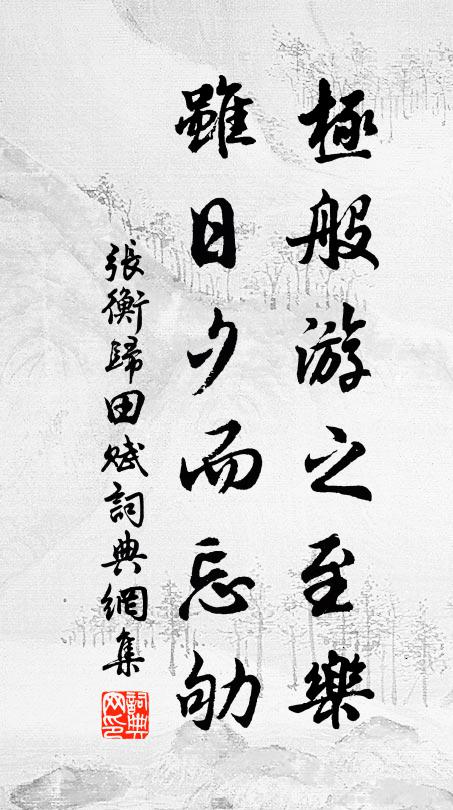 極般游之至樂
雖日夕而忘劬
張衡歸田賦詞典網集
詞典网印